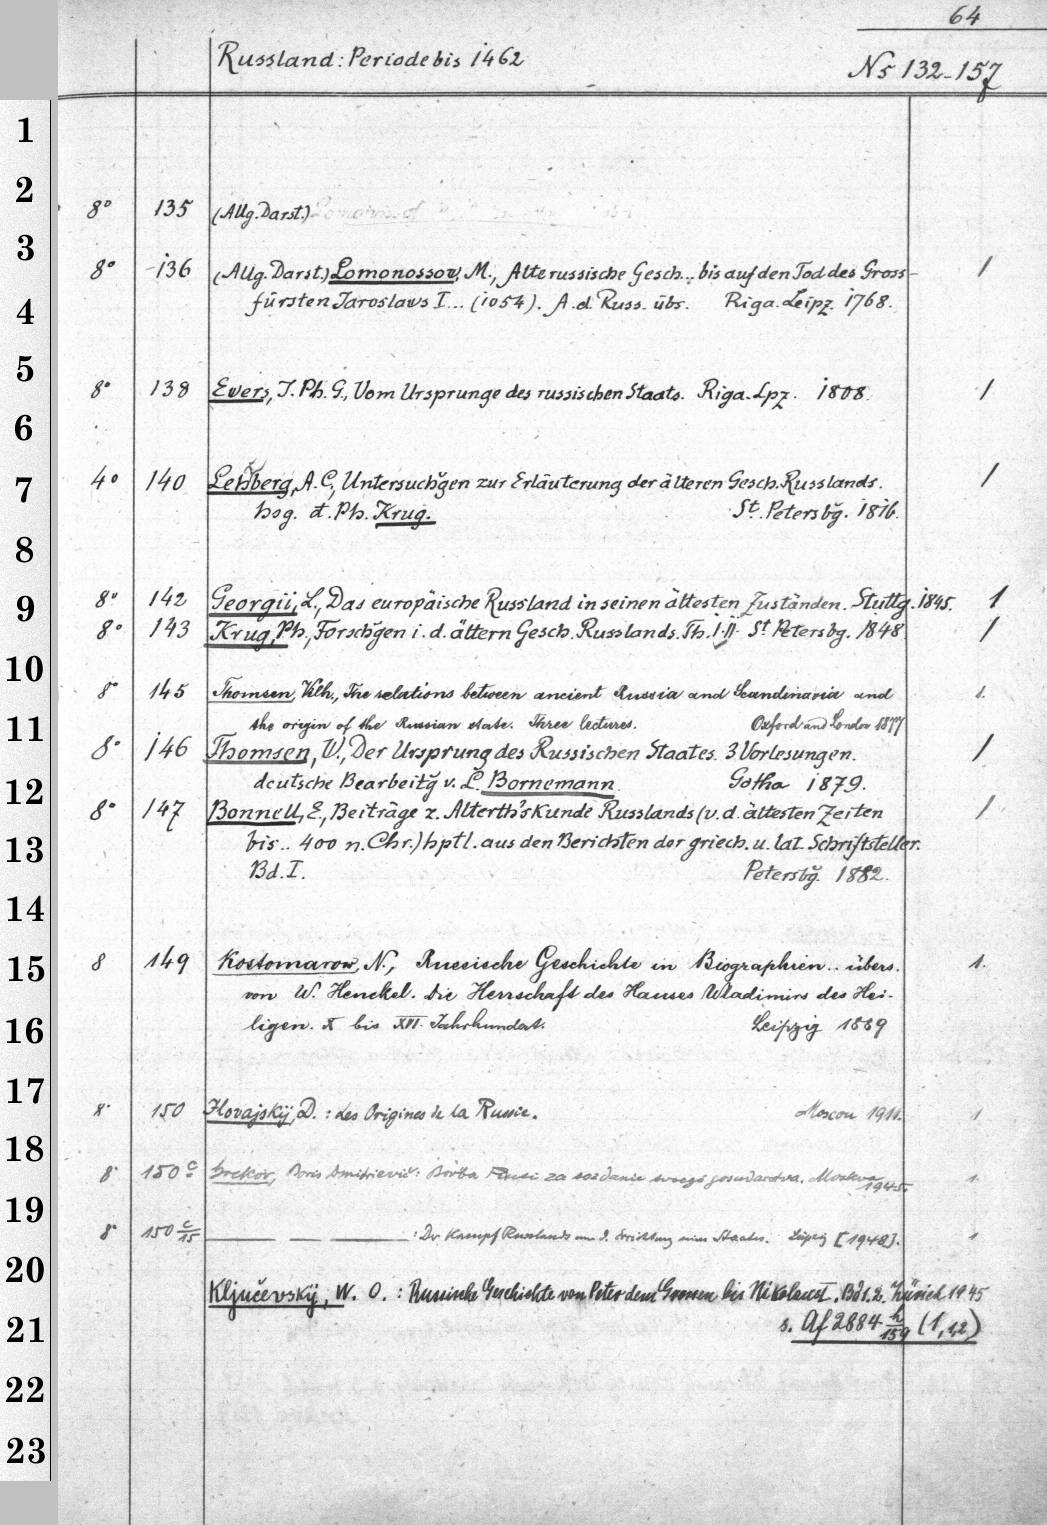 64
Russland: Periode bis 1462
No 132-157
1
2
8° 135 (Allg. Darst.)
3
8° 136 (Allg. Darst.) Lomonossow, M., Alterussische Gesch... bis auf den Tod des Gross- 1
4
fürsten Jaroslaws I... (1054). A. d. Russ. übs. Riga. Leipz. 1768.
5
8° 138 Ewers, J. Ph. G., Vom Ursprunge des russischen Staats. Riga. Lpz. 1808. 1
6
7
4° 140 Lehrberg, A. C., Untersuchğen zur Erläuterung der älteren Gesch. Russlands. 1
hsg. d. Ph. Krug. St. Petersbğ. 1816.
8
9
8° 142 Georgii, L., Das europäische Russland in seinen ältesten Zuständen. Stuttg. 1845. 1
8° 143 Krug, Ph., Forschğen i. d. ältern Gesch. Russlands. Th. I. II. St Petersbg. 1848 1
10
8° 145 Thomsen, Vilh., The relations between ancient Russia and Scandinavia and 1.
11
the origin of the Russian state. Three lectures. Oxford and London 1877
8° 146 Thomsen, W., Der Ursprung des Russischen Staates. 3 Vorlesungen. 1
12
deutsche Bearbeitğ v. L. Bornemann Gotha 1879.
8° 147 Bonnell, E., Beiträge z. Alterth'skunde Russlands (v. d. ältesten Zeiten 1
13
bis.. 400 n. Chr.) hptl. aus den Berichten der griech. u. lat. Schriftsteller.
Bd. I. Petersbğ. 1882.
14
15
8 149 Kostomarow, N., Russische Geschichte in Biographien.. übers. 1.
von W. Henckel. Die Herrschaft des Hauses Wladimirs des Hei-
16
ligen. X bis XVI. Jahrhundert. Leipzig 1889
17
8° 150 Ilovajskij, D. : Les Origines de la Russie. Moscou 1911. 1
18
8° 150 c Grekov, Boris Dmitrievič: Bor'ba Rusi za sozdanie svoego gosudarstva. Moskva 1945. 1.
19
8° 150 c/15 — — — : Der Kampf Russlands um d. Errichtung seines Staates. Leipzig [1948]. 1
20
Ključevskij, W. O. : Russische Geschichte von Peter dem Grossen bis Nikolaus I. Bd 1.2. Zürich 1945
21
s. Af 2884 h/159 (1, 1,2)
22
23